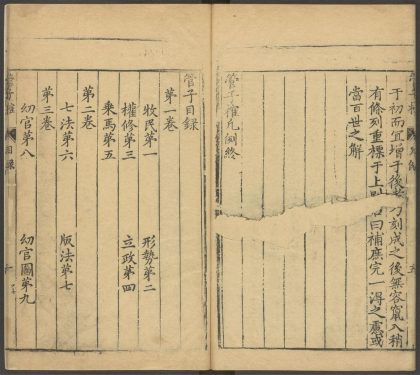 于初而宜增于後者刻成之後無容竄入稍
有條列重標于上曰補庶完一得之慮或
當百世之解
管子榷凡例終
管子目錄
第一卷
牧民第一 形勢第二
權修第三 立政第四
乘馬第五
第二卷
七法第六 版法第七
第三卷
幼官第八 幼官圖第九
管子榷 目錄